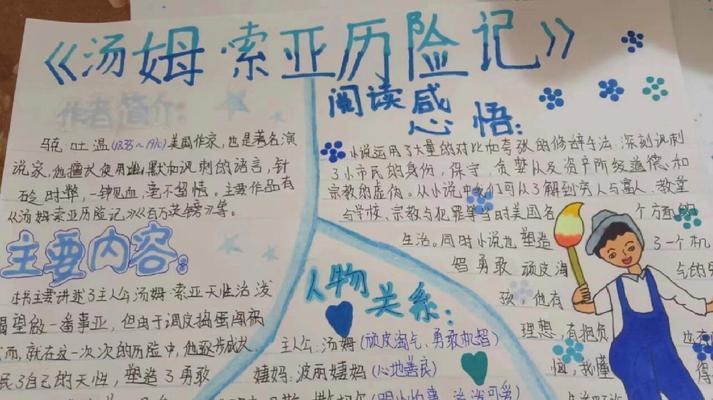 《汤姆·索亚历险记》
作者简介:
马克·吐温(1835~1910)美国作家,也是著名演
说家,他擅长使用幽默和讽刺的语言,针
砭时弊,一针见血,毫不留情。主要作品有
《汤姆·索亚历险记》《百万英镑》等。
主要内容
本书主要讲述了主人公汤姆·索亚天性活泼
渴望做一番事业,但由于调皮捣蛋闯祸
而,就在这一次次的历险中,他逐步成大
了自己的天性,塑造了勇敢
阅读感
心悟:
小说运用了大量的对比和夸张的修辞手法,深刻讽刺
了小市民的身份,保守、贪婪以及资产阶级道德和
宗教的虚伪。从小说中我们可以了解到穷人与富人、教堂
与学校、宗教与犯罪等当时美国各 个方面的
生活。同时小说也塑造 了一个机
智勇敢 顽皮淘 气的
孩,他有
理想,有抱负 也有
恼,我懂 得
人物
关系:
主人公:汤姆(顽皮淘气、勇敢机智)
嬉妈:波丽嬉妈(心地善良)